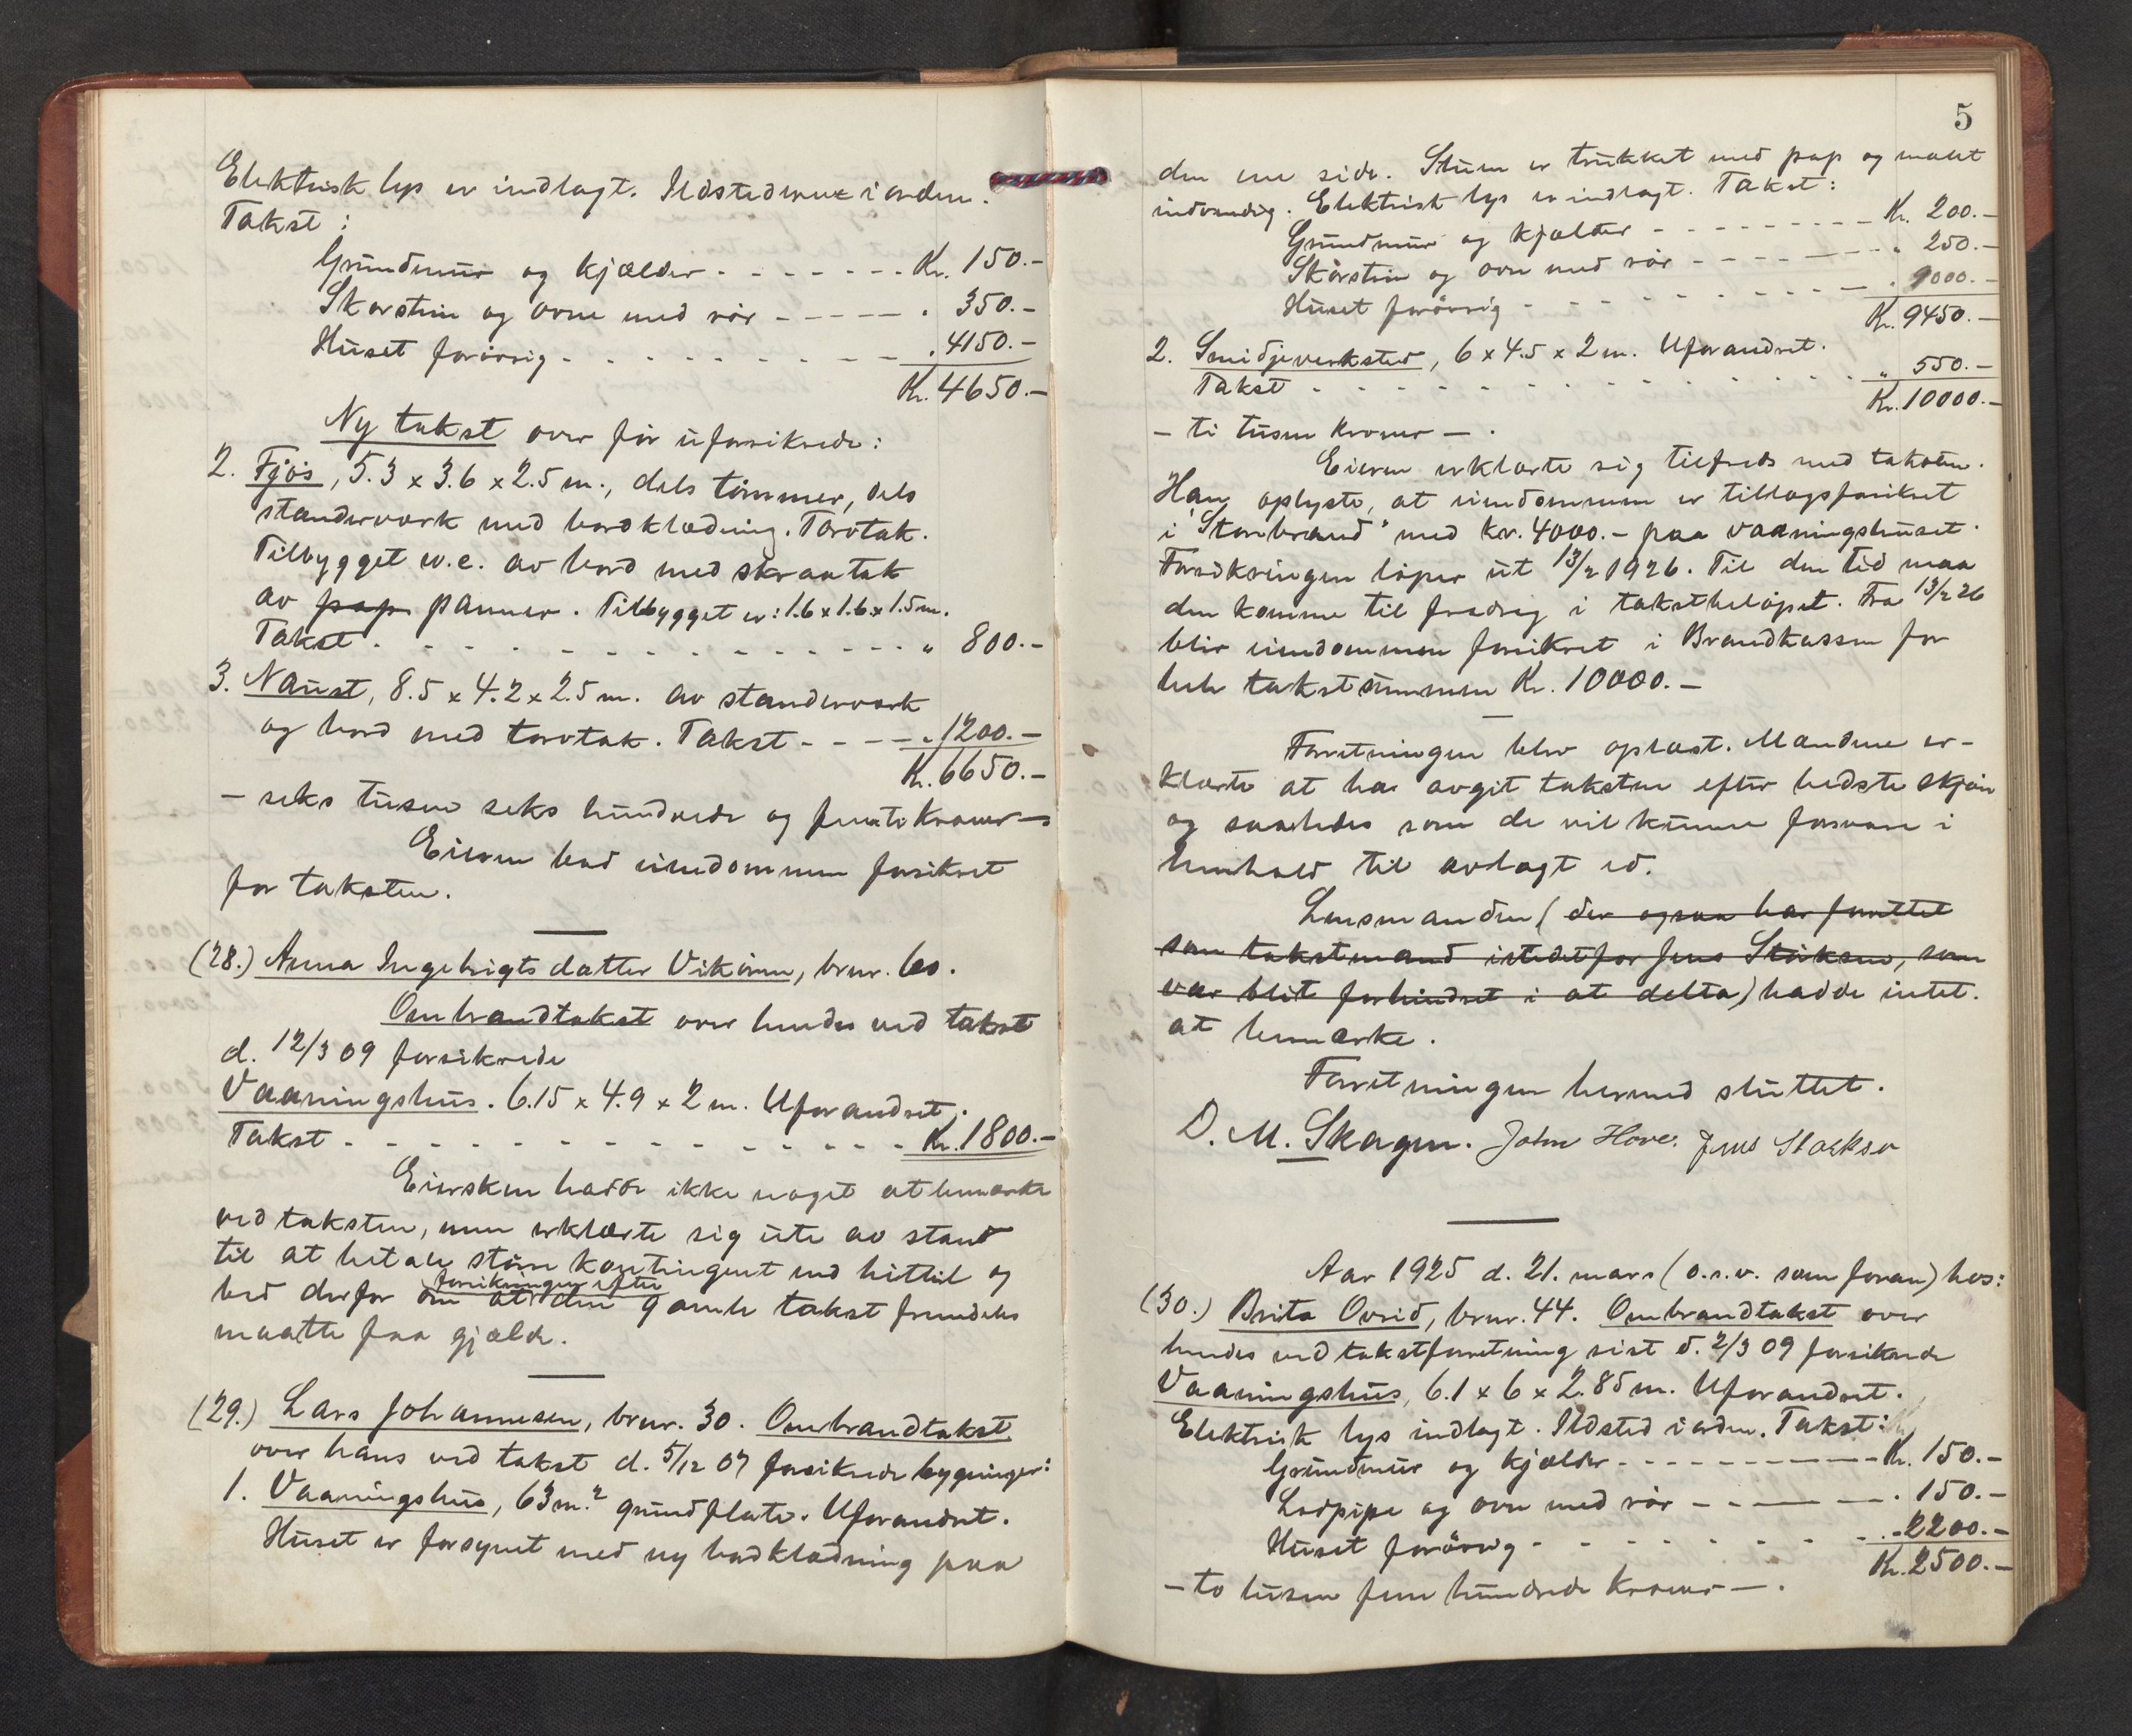 Elektrisk lys er indlagt. Ildstederne i orden.
Takst:
Grundmur og kjælder - - - - - - - Kr. 150.-
Skorstein og ovne med rör - - - - - " 350.-
Huset forövrig - - - - - - - - - " 4150.-
Kr. 4650.-
Ny takst over för uforsikrede:
2. Fjös, 5.3 x 3.6 x 2.5 m., dels tömmer, dels
standerverk med bordklædning. Torvtak.
Tilbygget w.c. av bord med skraatak
av pap panner. Tilbygget er: 1.6 x 1.6 x 1.5 m.
Takst - - - - - - - - - - - - - - " 800.-
3. Naust, 8.5 x 4.2 x 2.5 m. av standerverk
og bord med torvtak. Takst - - - - " 1200.-
Kr. 6650.-
- seks tusen seks hundrede og femti kroner -
Eieren bad eiendommen forsikret
for taksten.
(28.) Anna Ingebrigtsdatter Vikören, brnr. 60.
Ombrandtakst over hendes ved takst
d. 12/3 09 forsikrede
Vaaningshus. 6.15 x 4.9 x 2 m. Uforandret.
Takst - - - - - - - - - - - - - - Kr. 1800.-
Eiersken hadde ikke noget at bemærke
ved taksten, men erklærte sig ute av stand
til at betale större kontingent end hittil og
forsikringen efter
bed derfor om at den gamle takst fremdeles
maatte faa gjælde.
(29.) Lars Johannesen, brnr. 30. Ombrandtakst
over hans ved takst d. 5/12 07 forsikrede bygninger:
1. Vaaningshus, 63 m.² grundflate. Uforandret.
Huset er forsynet med ny bordklædning paa
5
den ene side. Stuen er trukket med pap og malt
indvendig. Elektrisk lys er indlagt. Takst:
Grundmur og kjælder - - - - - - - - - Kr. 200.-
Skorstein og ovn med rör - - - - - - - " 250.-
Huset forövrig - - - - - - - - - - - " 9000.-
Kr. 9450.-
2. Smidjeverksted, 6 x 4.5 x 2 m. Uforandret.
Takst - - - - - - - - - - - - - - - " 550.-
Kr. 10000.-
- ti tusen kroner - .
Eieren erklærte sig tilfreds med taksten.
Han oplyste, at eiendommen er tillægsforsikret
i "Storebrand" med kr. 4000.- paa vaaningshuset.
Forsikringen löper ut 13/2 1926. Til den tid maa
den komme til fradrag i takstbelöpet. Fra 13/2 26
blir eiendommen forsikret i Brandkassen for
hele takstsummen Kr. 10000.-
Forretningen blev oplæst. Mændene er-
klærte at ha avgit taksten efter bedste skjön
og saaledes som de vil kunne forsvare i
henhold til avlagt ed.
Lensmanden (der ogsaa har forrettet
som takstmand istedetfor Jens Störksen, som
var blit forhindret i at delta) hadde intet.
at bemærke.
Forretningen hermed sluttet.
D. M. Skagen. John Hove. Jens Størksen
Aar 1925 d. 21. mars (o.s.v. som foran) hos:
(30.) Brita Ovrid, brnr. 44. Ombrandtakst over
hendes ved takstforretning sist d. 2/3 09 forsikrede
Vaaningshus, 6.1 x 6 x 2.85 m. Uforandret.
Elektrisk lys indlagt. Ildsted i orden. Takst:
Grundmur og kjælder - - - - - - - - - Kr. 150.-
Lodpipe og ovn med rör - - - - - - " 150.-
Huset forövrig - - - - - - - - - - " 2200.-
Kr. 2500.-
- to tusen fem hundrede kroner - .